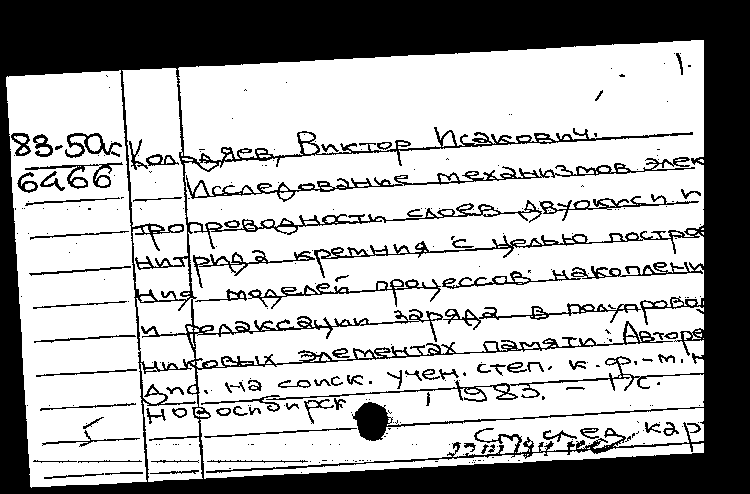 1.
83-50к
6466
Кольдяев, Виктор Исакович.
Исследование механизмов элек
тропроводности слоев двуокиси и
нитрида кремния с целью построе
ния моделей процессов накоплени
и релаксации заряда в полупровод
никовых элементах памяти: Авторе
Дис. на соиск. учен. степ. к. ф.-м. н
Новосибирск, 1983. – 17с.
См. след карт